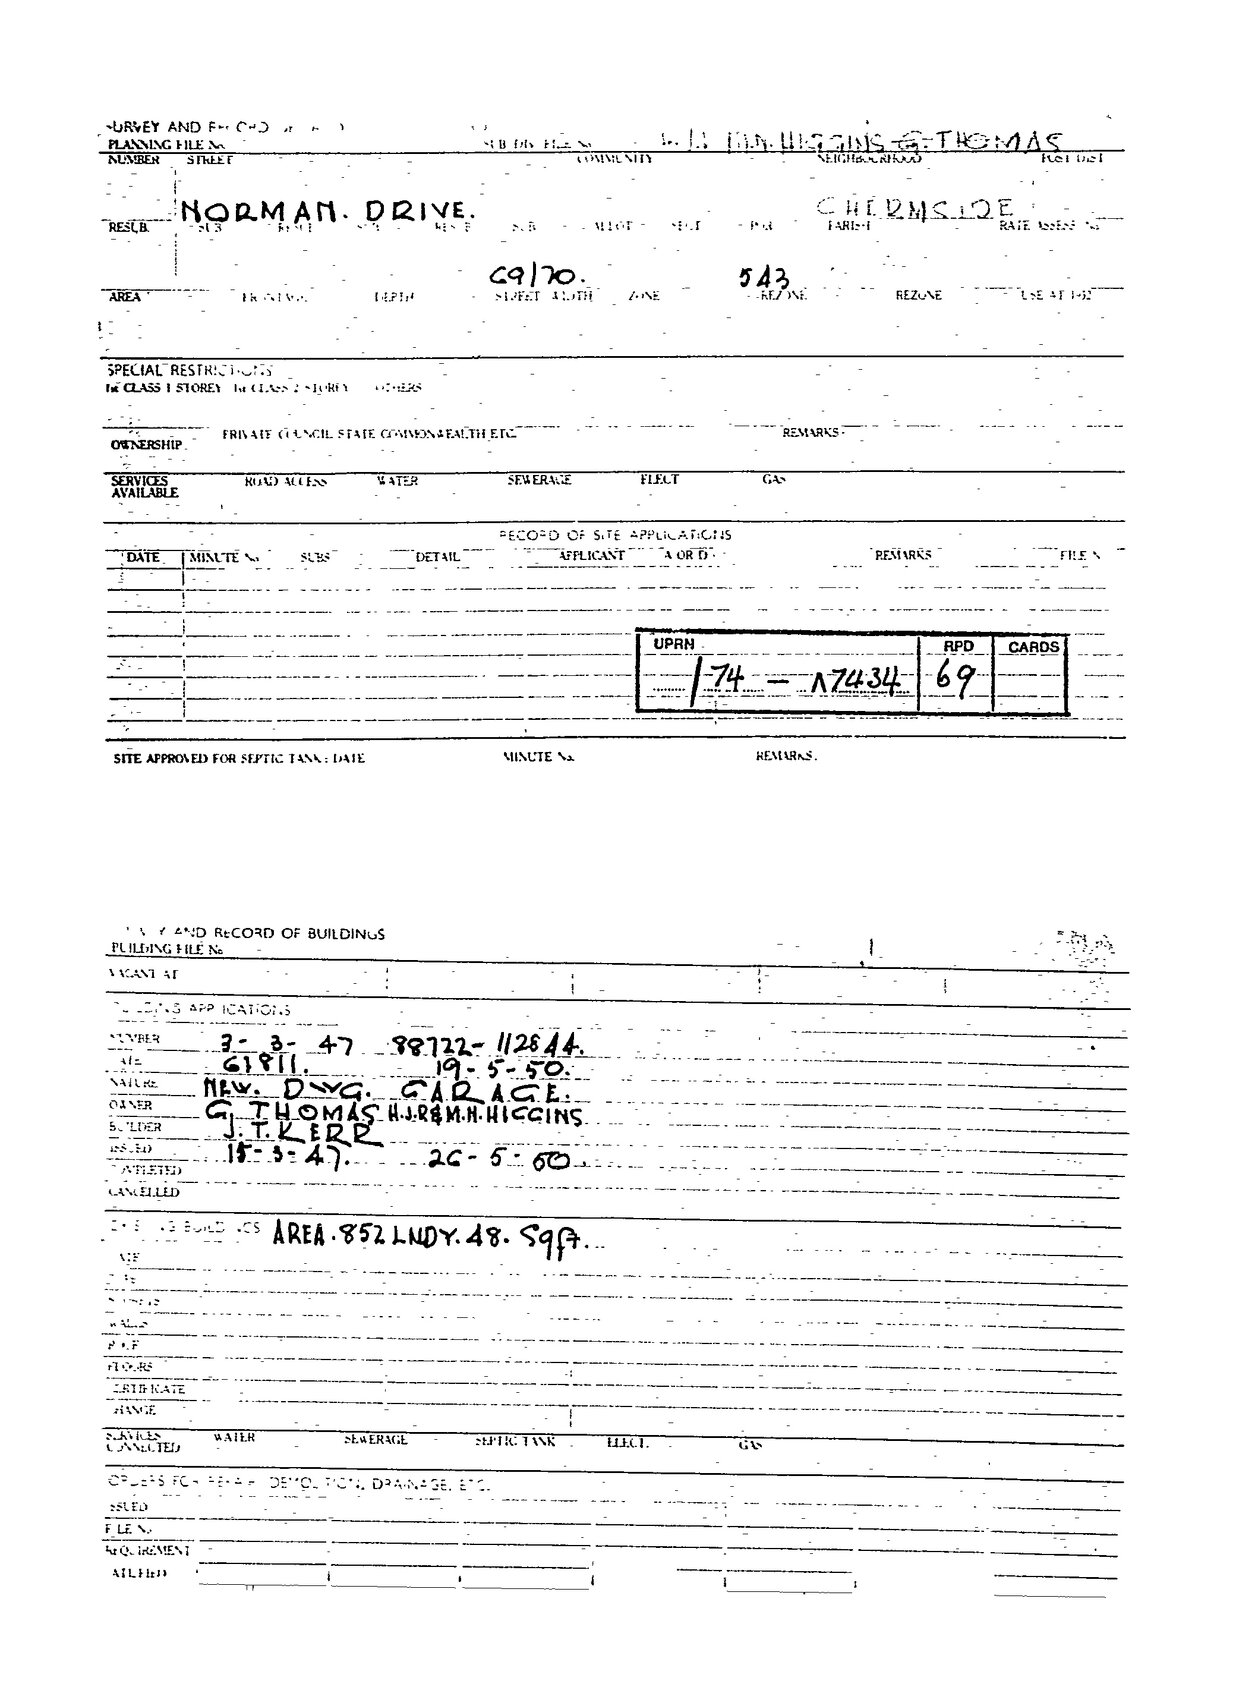 SURVEY AND RECORD
PLANNING FILE No. SUB DIV. FILE No. HIGGINS G. THOMAS
NUMBER STREET COMMUNITY NEIGHBOURHOOD POST DIST
NORMAN. DRIVE. CHERMSIDE
RESUB. SUB RESUB SUB RESUB SUB ALLOT SECT POR PARISH RATE ASSESS No
69/70. 543
AREA FRONTAGE DEPTH STREET WIDTH ZONE REZONE REZONE USE AT
SPECIAL RESTRICTIONS
1st CLASS 1 STOREY 1st CLASS 2 STOREY OTHERS
OWNERSHIP PRIVATE COUNCIL STATE COMMONWEALTH ETC. REMARKS
SERVICES AVAILABLE ROAD ACCESS WATER SEWERAGE ELECT GAS
RECORD OF SITE APPLICATIONS
DATE MINUTE No SUBS DETAIL APPLICANT A OR D REMARKS FILE N
UPRN RPD CARDS
174 - 17434 69
SITE APPROVED FOR SEPTIC TANK: DATE MINUTE No. REMARKS.
AND RECORD OF BUILDINGS
BUILDING FILE No
VACANT AT
BUILDING APPLICATIONS
NUMBER 3- 3- 47 88722- 112844.
DATE 61811. 19- 5- 50.
NATURE NEW. DWG. GARAGE.
OWNER G. THOMAS H.J.R&M.H.HIGGINS
BUILDER J.T.KERR
ISSUED 15-3-47. 26-5-50
COMPLETED
CANCELLED
EXISTING BUILDINGS AREA.852 LNDY.48. Sqft.
WALLS
ROOF
FLOORS
CERTIFICATE
CHANGE
SERVICES CONNECTED WATER SEWERAGE SEPTIC TANK ELECT. GAS
ORDERS FOR REPAIR, DEMOLITION, DRAINAGE, ETC.
ISSUED
FILE No.
REQUIREMENT